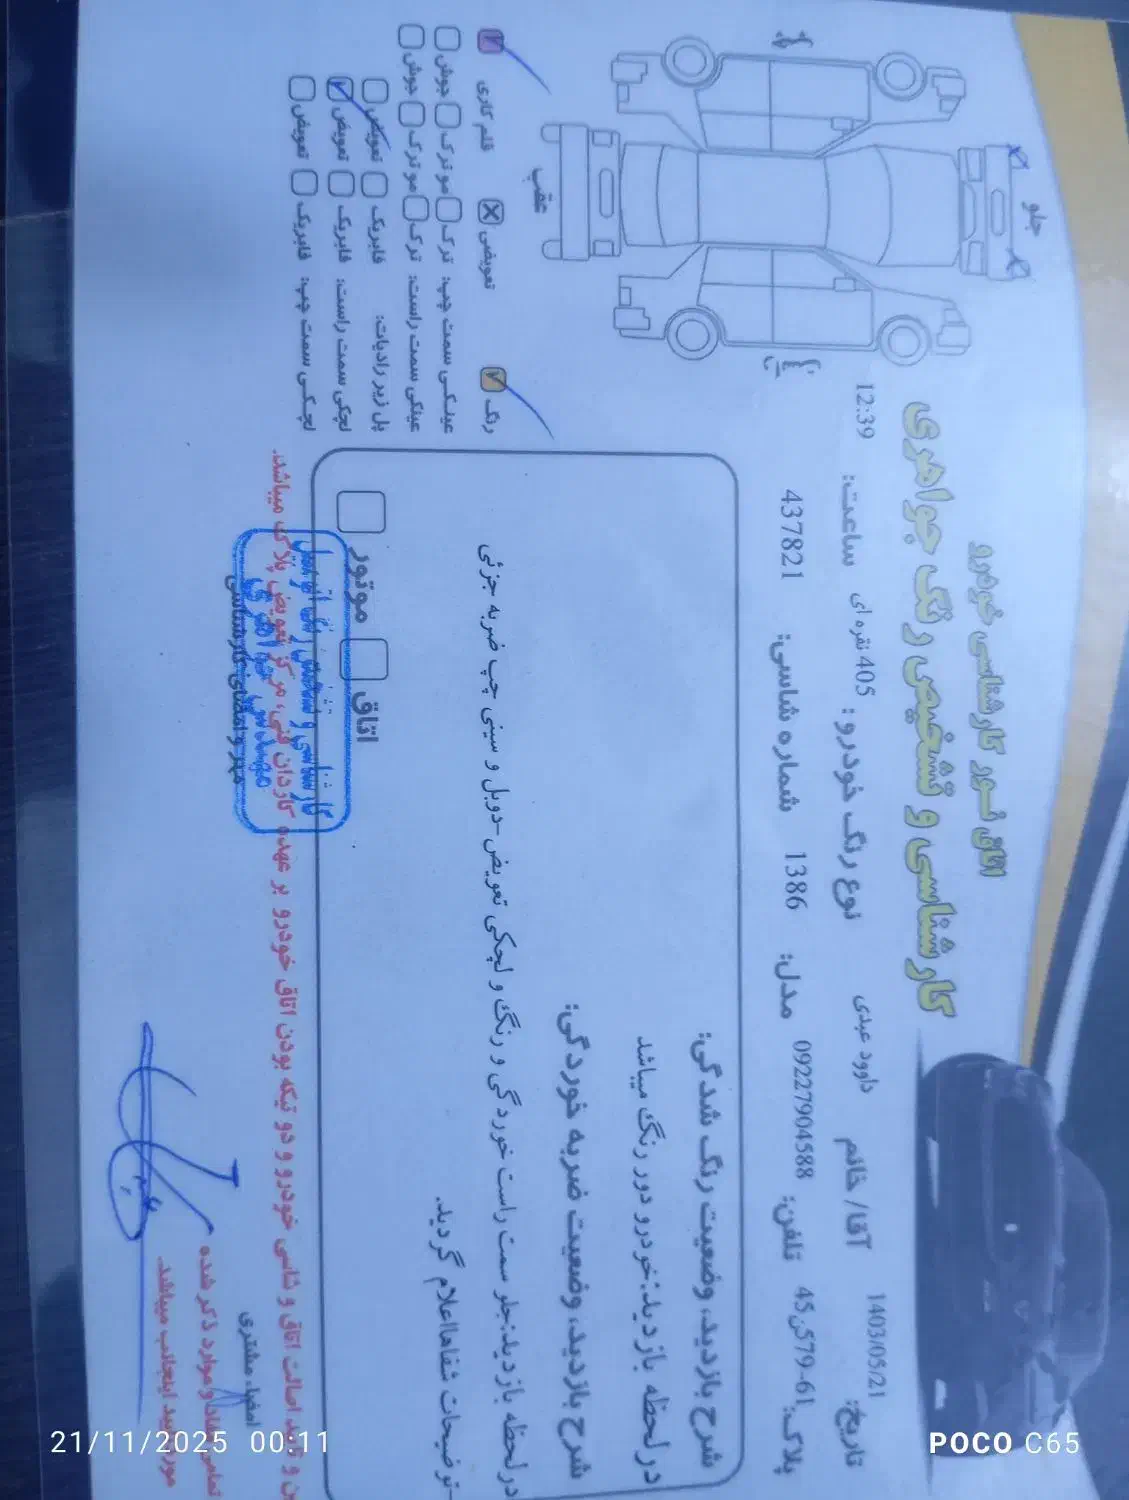 اتاق نور کارشناسی خودرو
کارشناسی و تشخیص رنگ جواهری
تاریخ: 1403/05/21 آقا/ خانم داوود عبدی نوع رنگ خودرو: 405 نقره ای ساعت: 12:39
پلاک: 61-579ن45 تلفن: 09227904588 مدل: 1386 شماره شاسی: 437821
شرح بازدید، وضعیت رنگ شدگی:
درلحظه بازدید:خودرو دور رنگ میباشد
شرح بازدید، وضعیت ضربه خوردگی:
درلحظه بازدید:جلو سمت راست خوردگی و رنگ و لچکی تعویض-دوبل و سینی چپ ضربه جزئی
-توضیحات شفاهااعلام گردید.
اتاق موتور
جلو
عقب
رنگ تعویض قلم کاری
عینکی سمت چپ: ترک مو ترک جوش
عینکی سمت راست: ترک مو ترک جوش
پل زیر رادیات: فابریک تعویض
لچکی سمت راست: فابریک تعویض
لچکی سمت چپ: فابریک تعویض
تایید اصالت اتاق و شاسی خودرو و دو تیکه بودن اتاق خودرو بر عهده کاردان فنی، مرکز تعویض پلاک میباشد.
مهر و امضای کارشناسی
امضاء مشتری
موارد ذکر شده
مورد تایید اینجانب میباشد.
21/11/2025 00:11
POCO C65